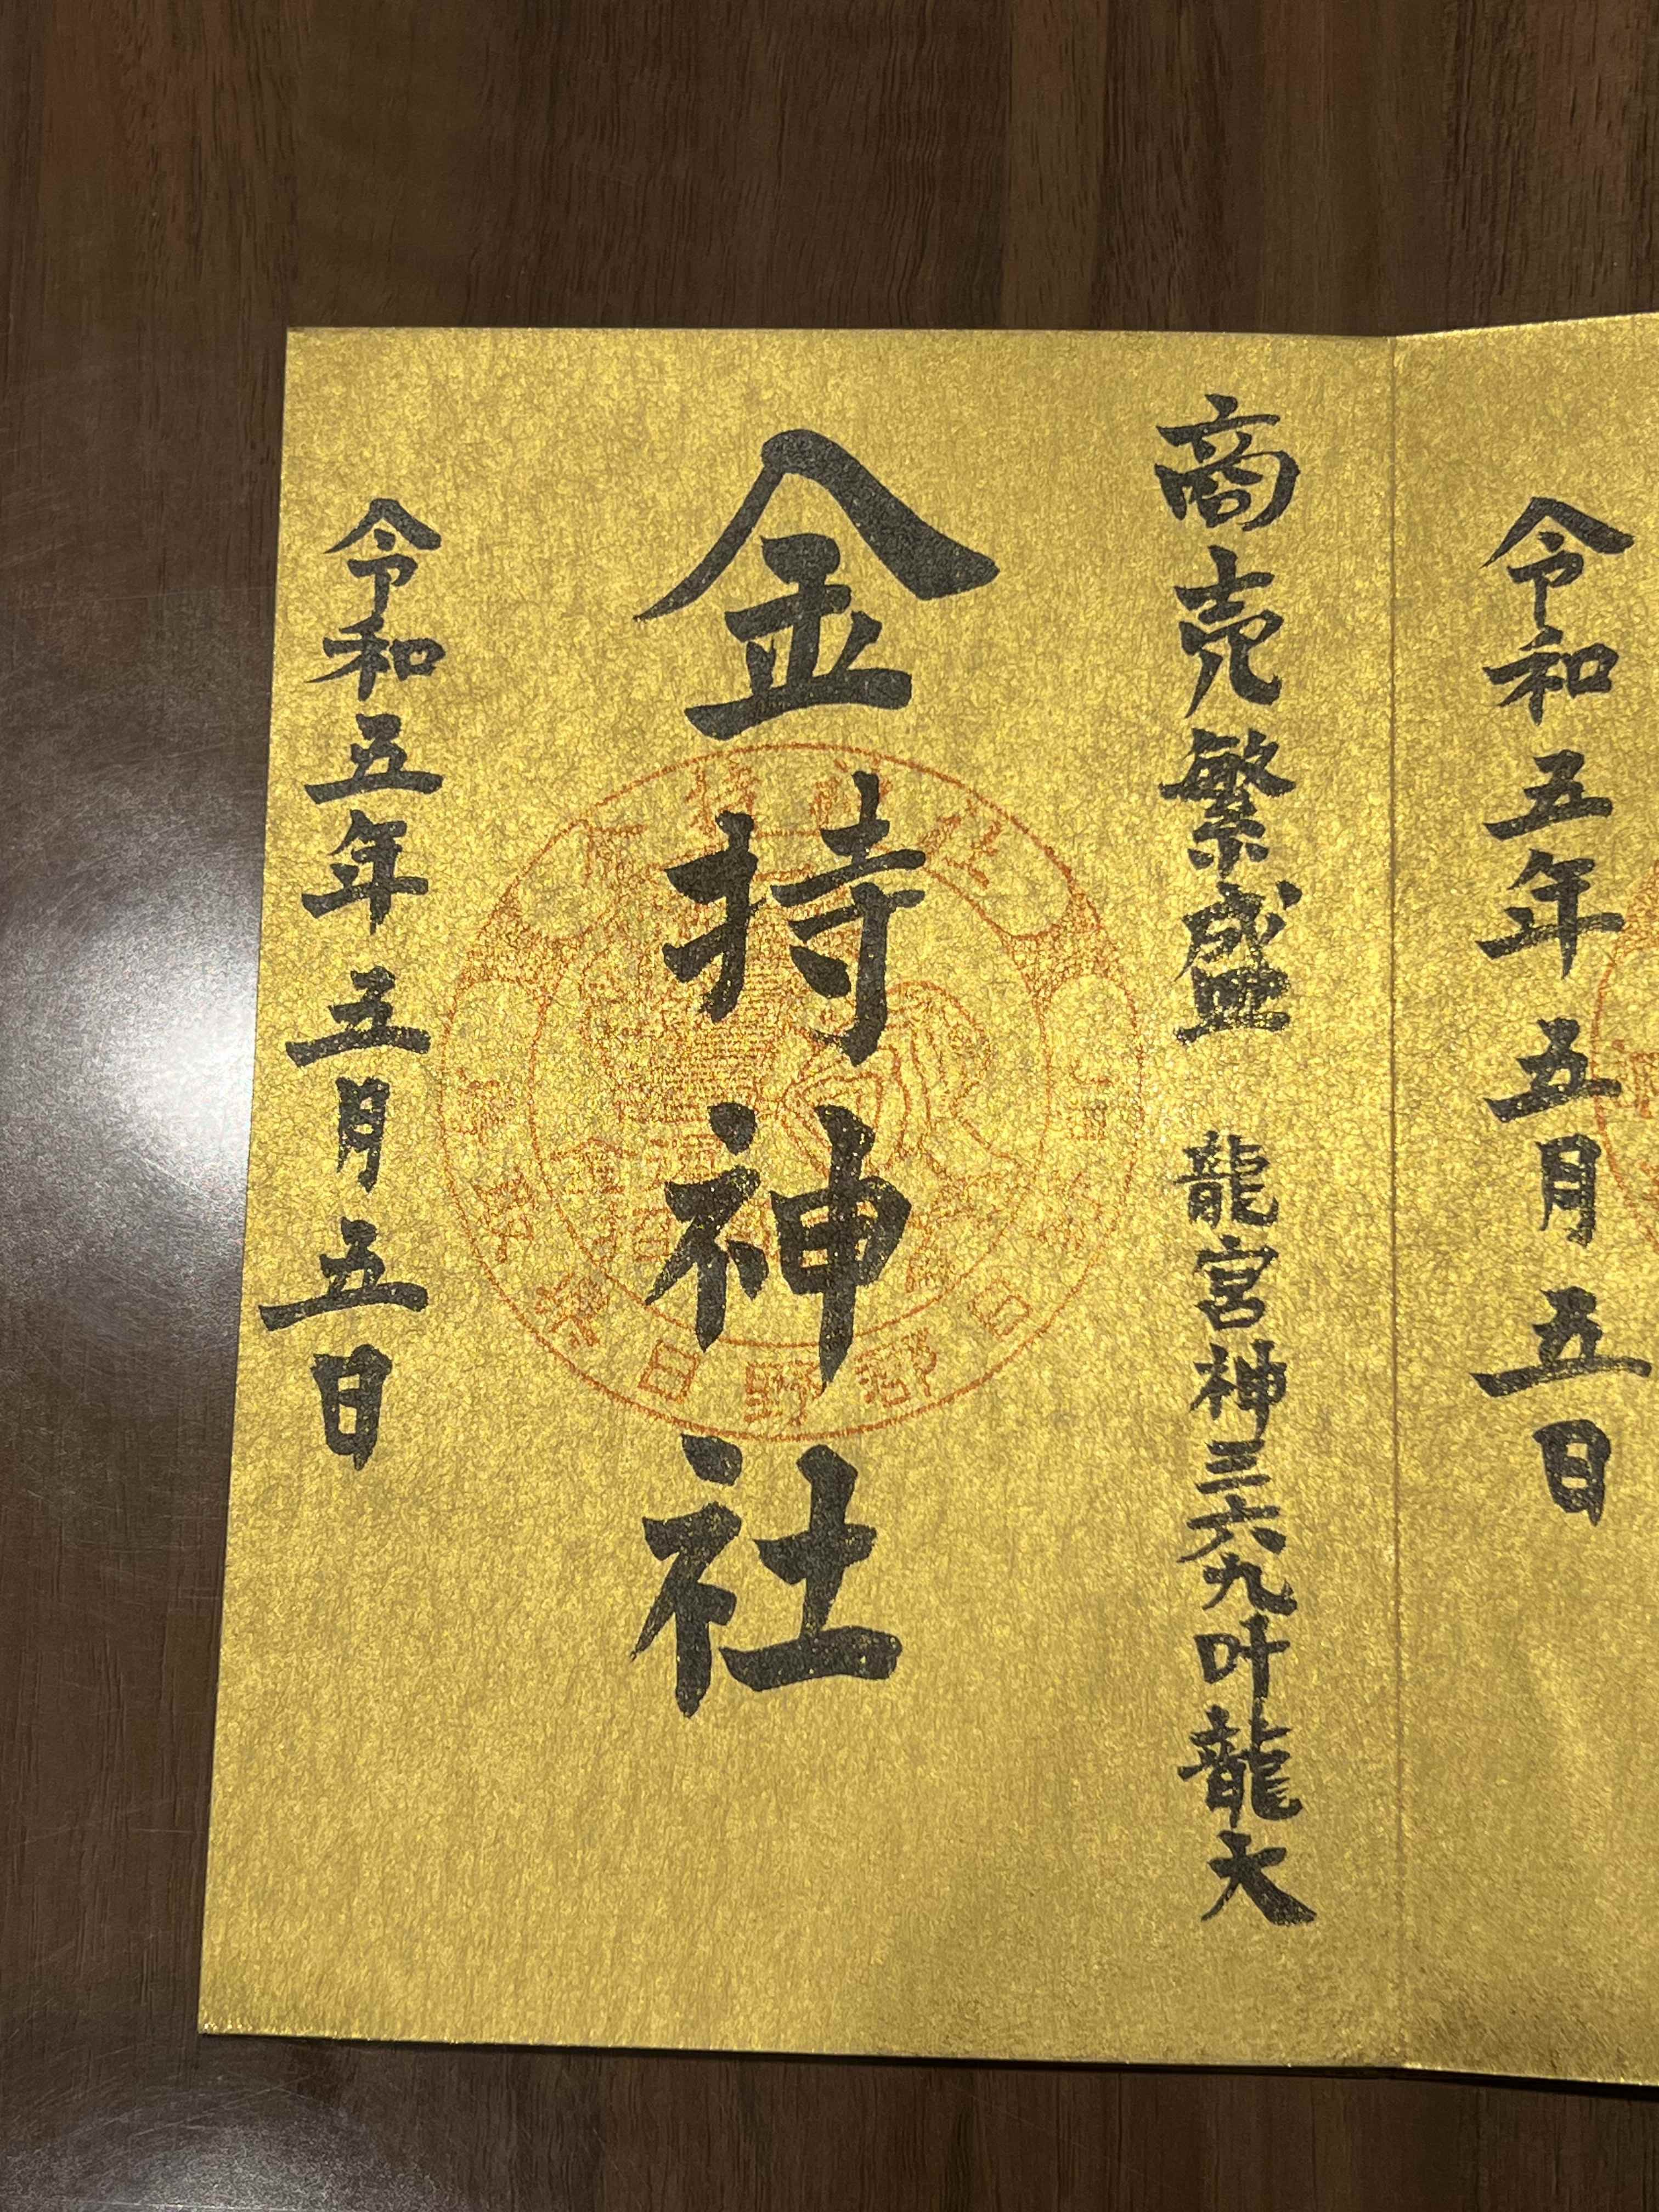 令和五年五月五日
商売繁盛 龍宮神三六九叶龍大
金持神社
令和五年五月五日
日野郡日